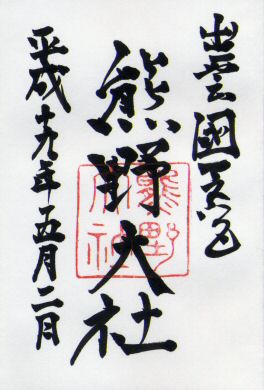 出雲國
熊野大社
平成十九年五月二日
熊野大社